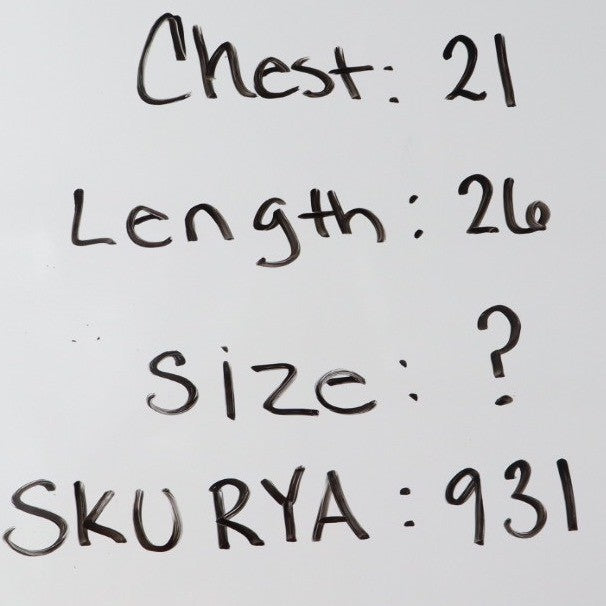 Chest: 21
Length: 26
Size: ?
SKU RYA: 931